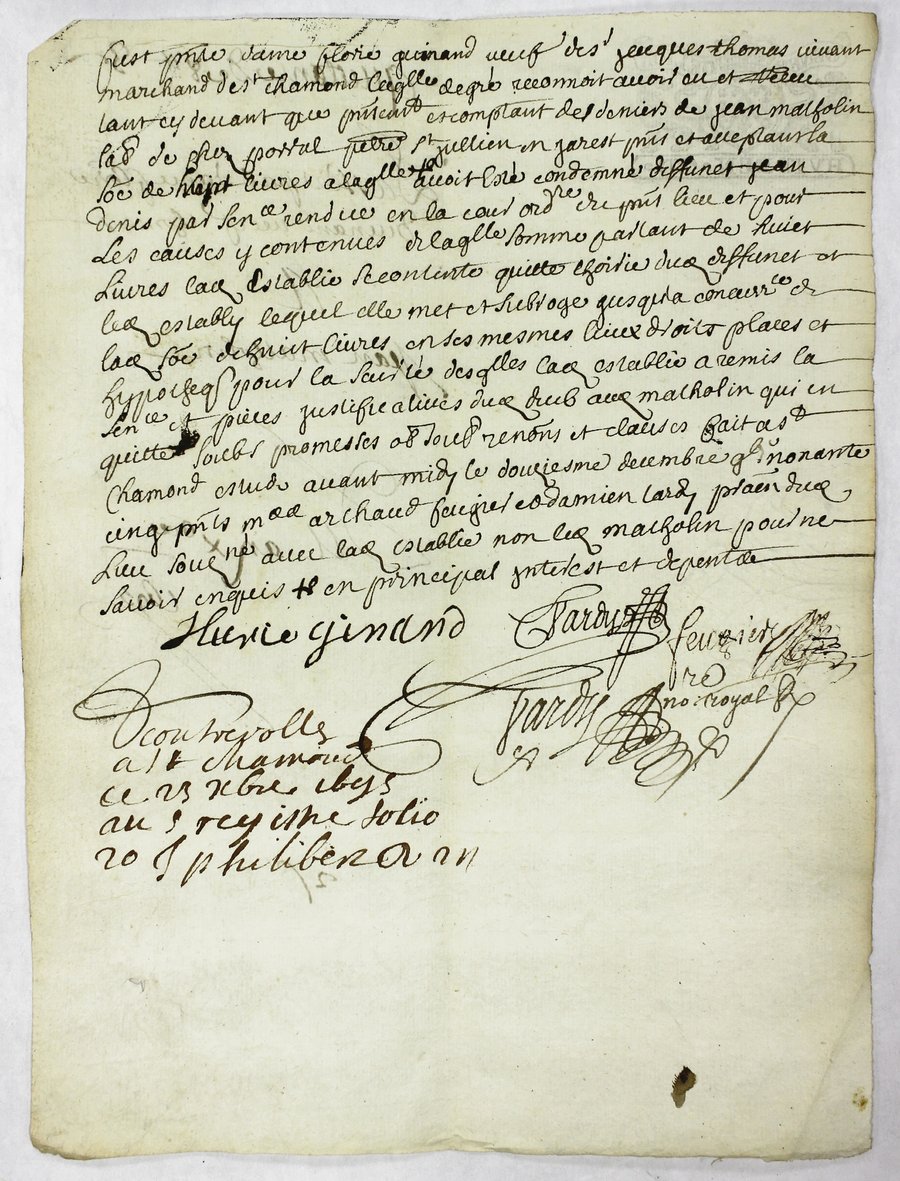 fust pnte dame florie guinand veufve de sr jacques thomas vivant
marchand de st chamond laqlle de gré reconnoit avoir eu et receu
tant cy devant que pntemt et comptant des deniers de jean matholin
labr de chez portal pbre st jullien en jarest pnt et acceptant la
soe de huit livres a laqlle avoit esté condemné deffunct jean
denis par sence rendue en la cour ordre du pnt lieu et pour
les causes y contenues de laqlle somme partant de huict
livres lade establie se contente quitte lhoirie dud deffunct et
led establi lequel elle met et subroge jusqua concurrce de
lade soe de huit livres en ses mesmes lieux droits places et
hypotheqs pour la seurté desqlles lade establie a remis la
senc et pieces justificatives dud deub aud matholin qui en
quitte soubs promesses obs soubs renons et clauses fait a st
chamond estude avant midy le douziesme decembre gbjc nonante
cinq pnts me archaud feugier et damien tardy praen dud
lieu sousné avec lade establie non led matholin pour ne
savoir enquis et en principal interest et depents
flurie ginand
Tardy
feugier
Tardy
re
no royal
controrolle
a st chamond
ce 23 xbre 1695
au 5 registre folio
20